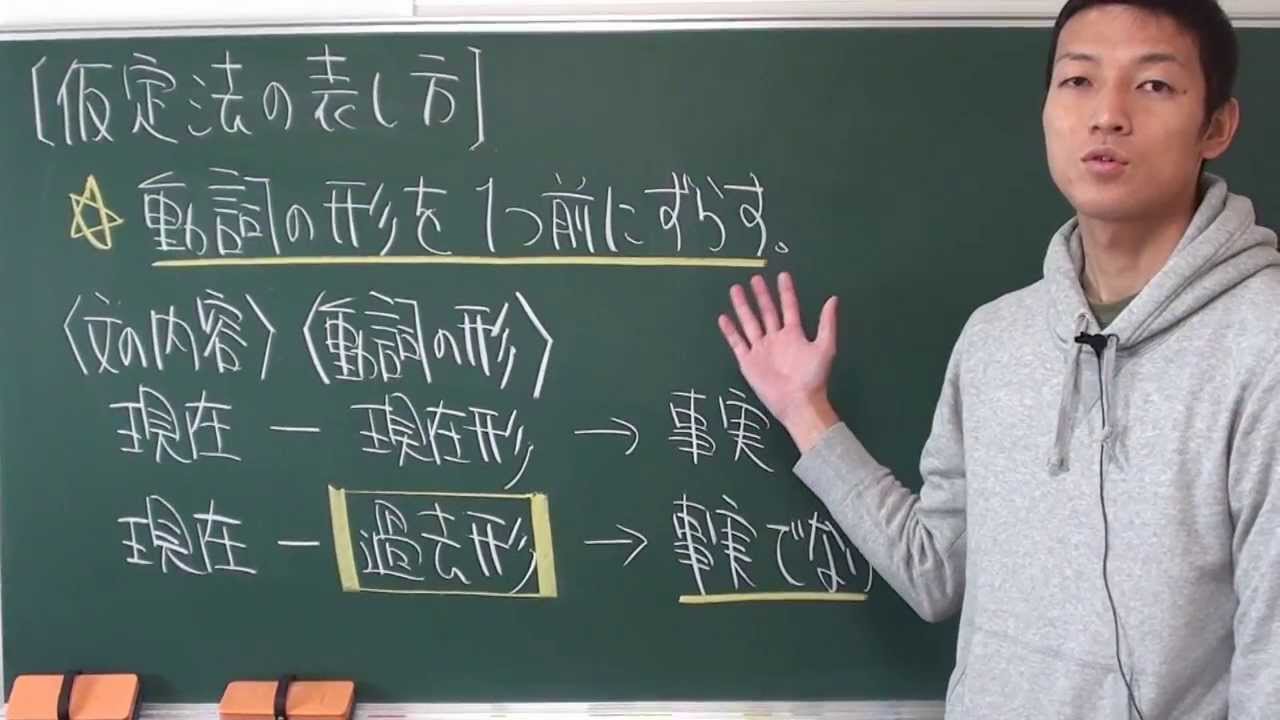 [仮定法の表し方]
☆ 動詞の形を1つ前にずらす。
〈文の内容〉〈動詞の形〉
現在 ー 現在形 → 事実
現在 ー 過去形 → 事実でない